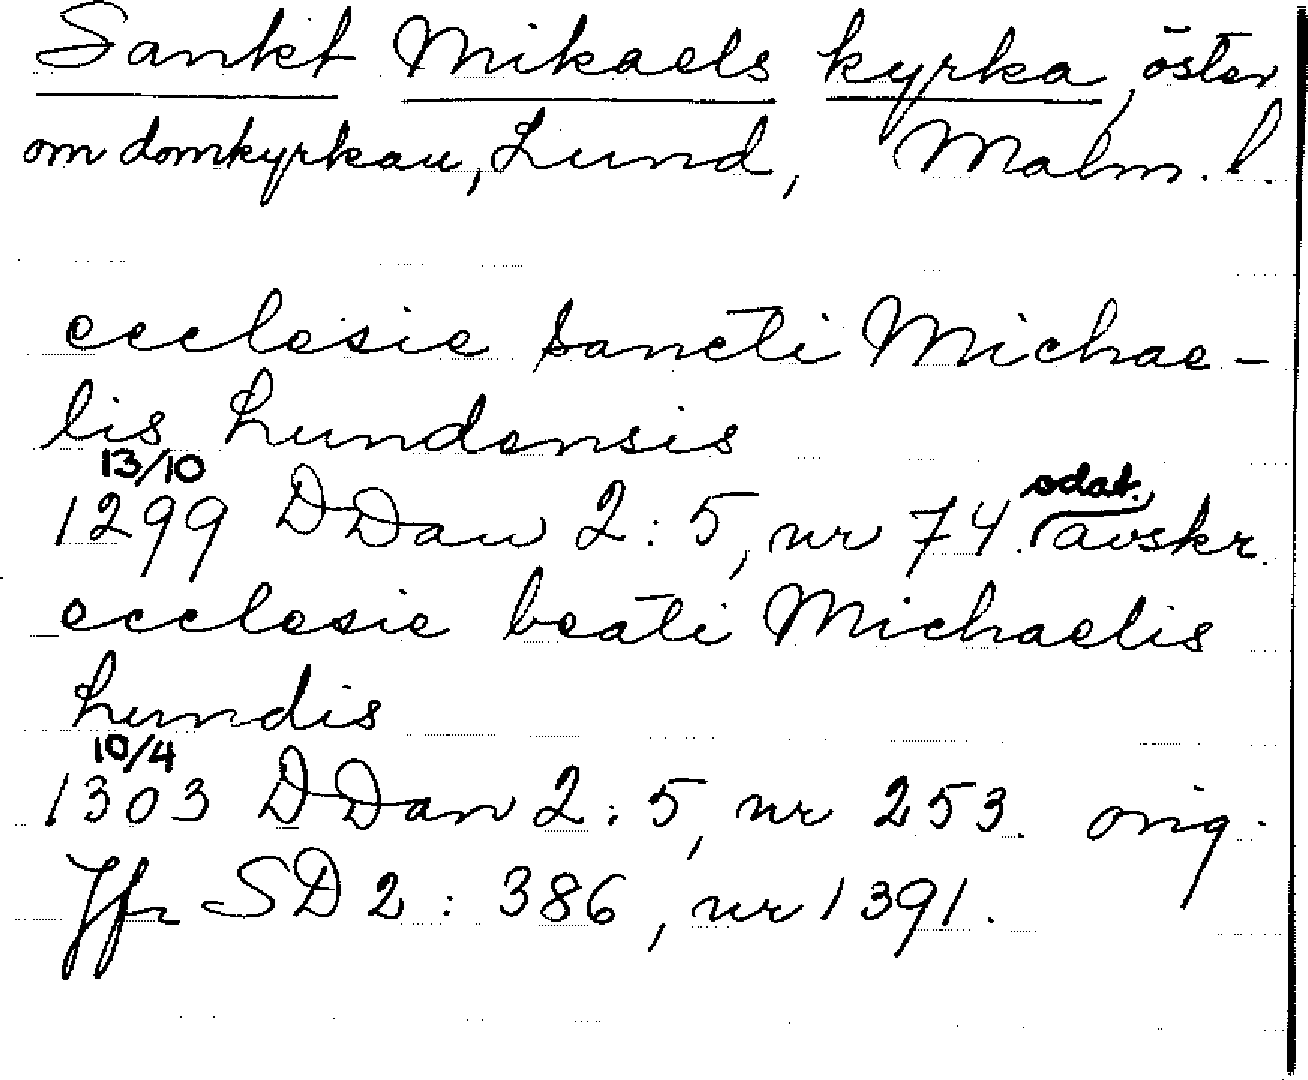 Sankt Mikaels kyrka, öster
om domkyrkan, Lund, Malm. l.
ecclesie sancti Michae-
lis Lundensis
13/10
1299 DDan 2:5, nr 74. odat. avskr.
ecclesie beati Michaelis
Lundis
10/4
1303 DDan 2:5, nr 253. orig.
Jfr SD 2: 386, nr 1391.